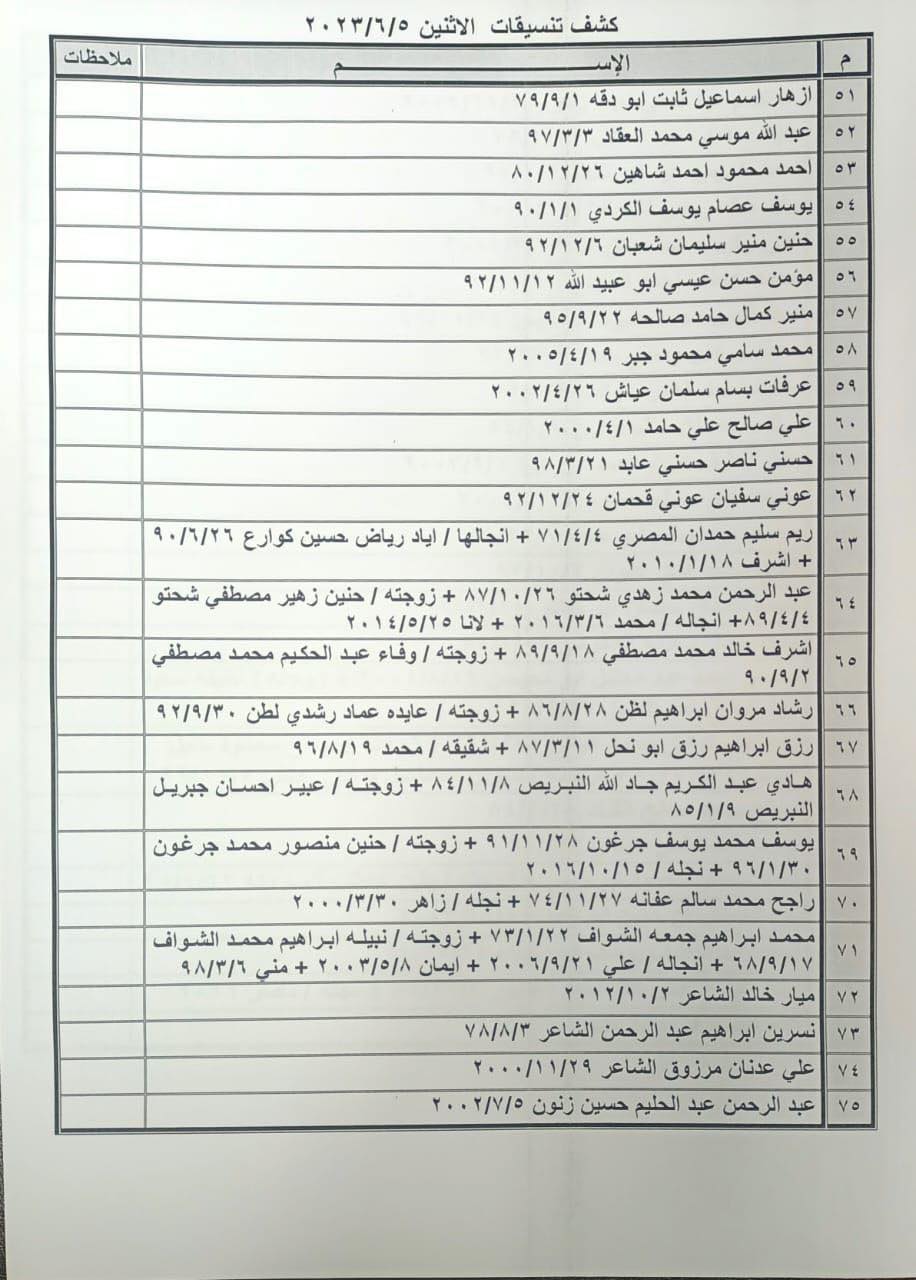 كشف تنسيقات الاثنين ٢٠٢٣/٦/٥
م الإســـــــــم ملاحظات
٥١ ازهار اسماعيل ثابت ابو دقه ٧٩/٩/١
٥٢ عبد الله موسي محمد العقاد ٩٧/٣/٣
٥٣ احمد محمود احمد شاهين ٨٠/١٢/٢٦
٥٤ يوسف عصام يوسف الكردي ٩٠/١/١
٥٥ حنين منير سليمان شعبان ٩٢/١٢/٦
٥٦ مؤمن حسن عيسي ابو عبيد الله ٩٢/١١/١٢
٥٧ منير كمال حامد صالحه ٩٥/٩/٢٢
٥٨ محمد سامي محمود جبر ٢٠٠٥/٤/١٩
٥٩ عرفات بسام سلمان عياش ٢٠٠٢/٤/٢٦
٦٠ علي صالح علي حامد ٢٠٠٠/٤/١
٦١ حسني ناصر حسني عابد ٩٨/٣/٢١
٦٢ عوني سفيان عوني قحمان ٩٢/١٢/٢٤
٦٣ ريم سليم حمدان المصري ٧١/٤/٤ + انجالها / اياد رياض حسين كوارع ٩٠/٦/٢٦
+ اشرف ٢٠١٠/١/١٨
٦٤ عبد الرحمن محمد زهدي شحتو ٨٧/١٠/٢٦ + زوجته / حنين زهير مصطفي شحتو
٨٩/٤/٤+ انجاله / محمد ٢٠١٦/٣/٦ + لانا ٢٠١٤/٥/٢٥
٦٥ اشرف خالد محمد مصطفي ٨٩/٩/١٨ + زوجته / وفاء عبد الحكيم محمد مصطفي
٩٠/٩/٢
٦٦ رشاد مروان ابراهيم لظن ٨٦/٨/٢٨ + زوجته / عايده عماد رشدي لطن ٩٢/٩/٣٠
٦٧ رزق ابراهيم رزق ابو نحل ٨٧/٣/١١ + شقيقه / محمد ٩٦/٨/١٩
٦٨ هادي عبد الكريم جاد الله النبريص ٨٤/١١/٨ + زوجته / عبير احسان جبريل
النبريص ٨٥/١/٩
٦٩ يوسف محمد يوسف جرغون ٩١/١١/٢٨ + زوجته / حنين منصور محمد جرغون
٩٦/١/٣٠ + نجله / ٢٠١٦/١٠/١٥
٧٠ راجح محمد سالم عفانه ٧٤/١١/٢٧ + نجله / زاهر ٢٠٠٠/٣/٣٠
٧١ محمد ابراهيم جمعه الشواف ٧٣/١/٢٢ + زوجته / نبيله ابراهيم محمد الشواف
٦٨/٩/١٧ + انجاله / علي ٢٠٠٦/٩/٢١ + ايمان ٢٠٠٣/٥/٨ + مني ٩٨/٣/٦
٧٢ ميار خالد الشاعر ٢٠١٢/١٠/٢
٧٣ نسرين ابراهيم عبد الرحمن الشاعر ٧٨/٨/٣
٧٤ علي عدنان مرزوق الشاعر ٢٠٠٠/١١/٢٩
٧٥ عبد الرحمن عبد الحليم حسين زنون ٢٠٠٢/٧/٥